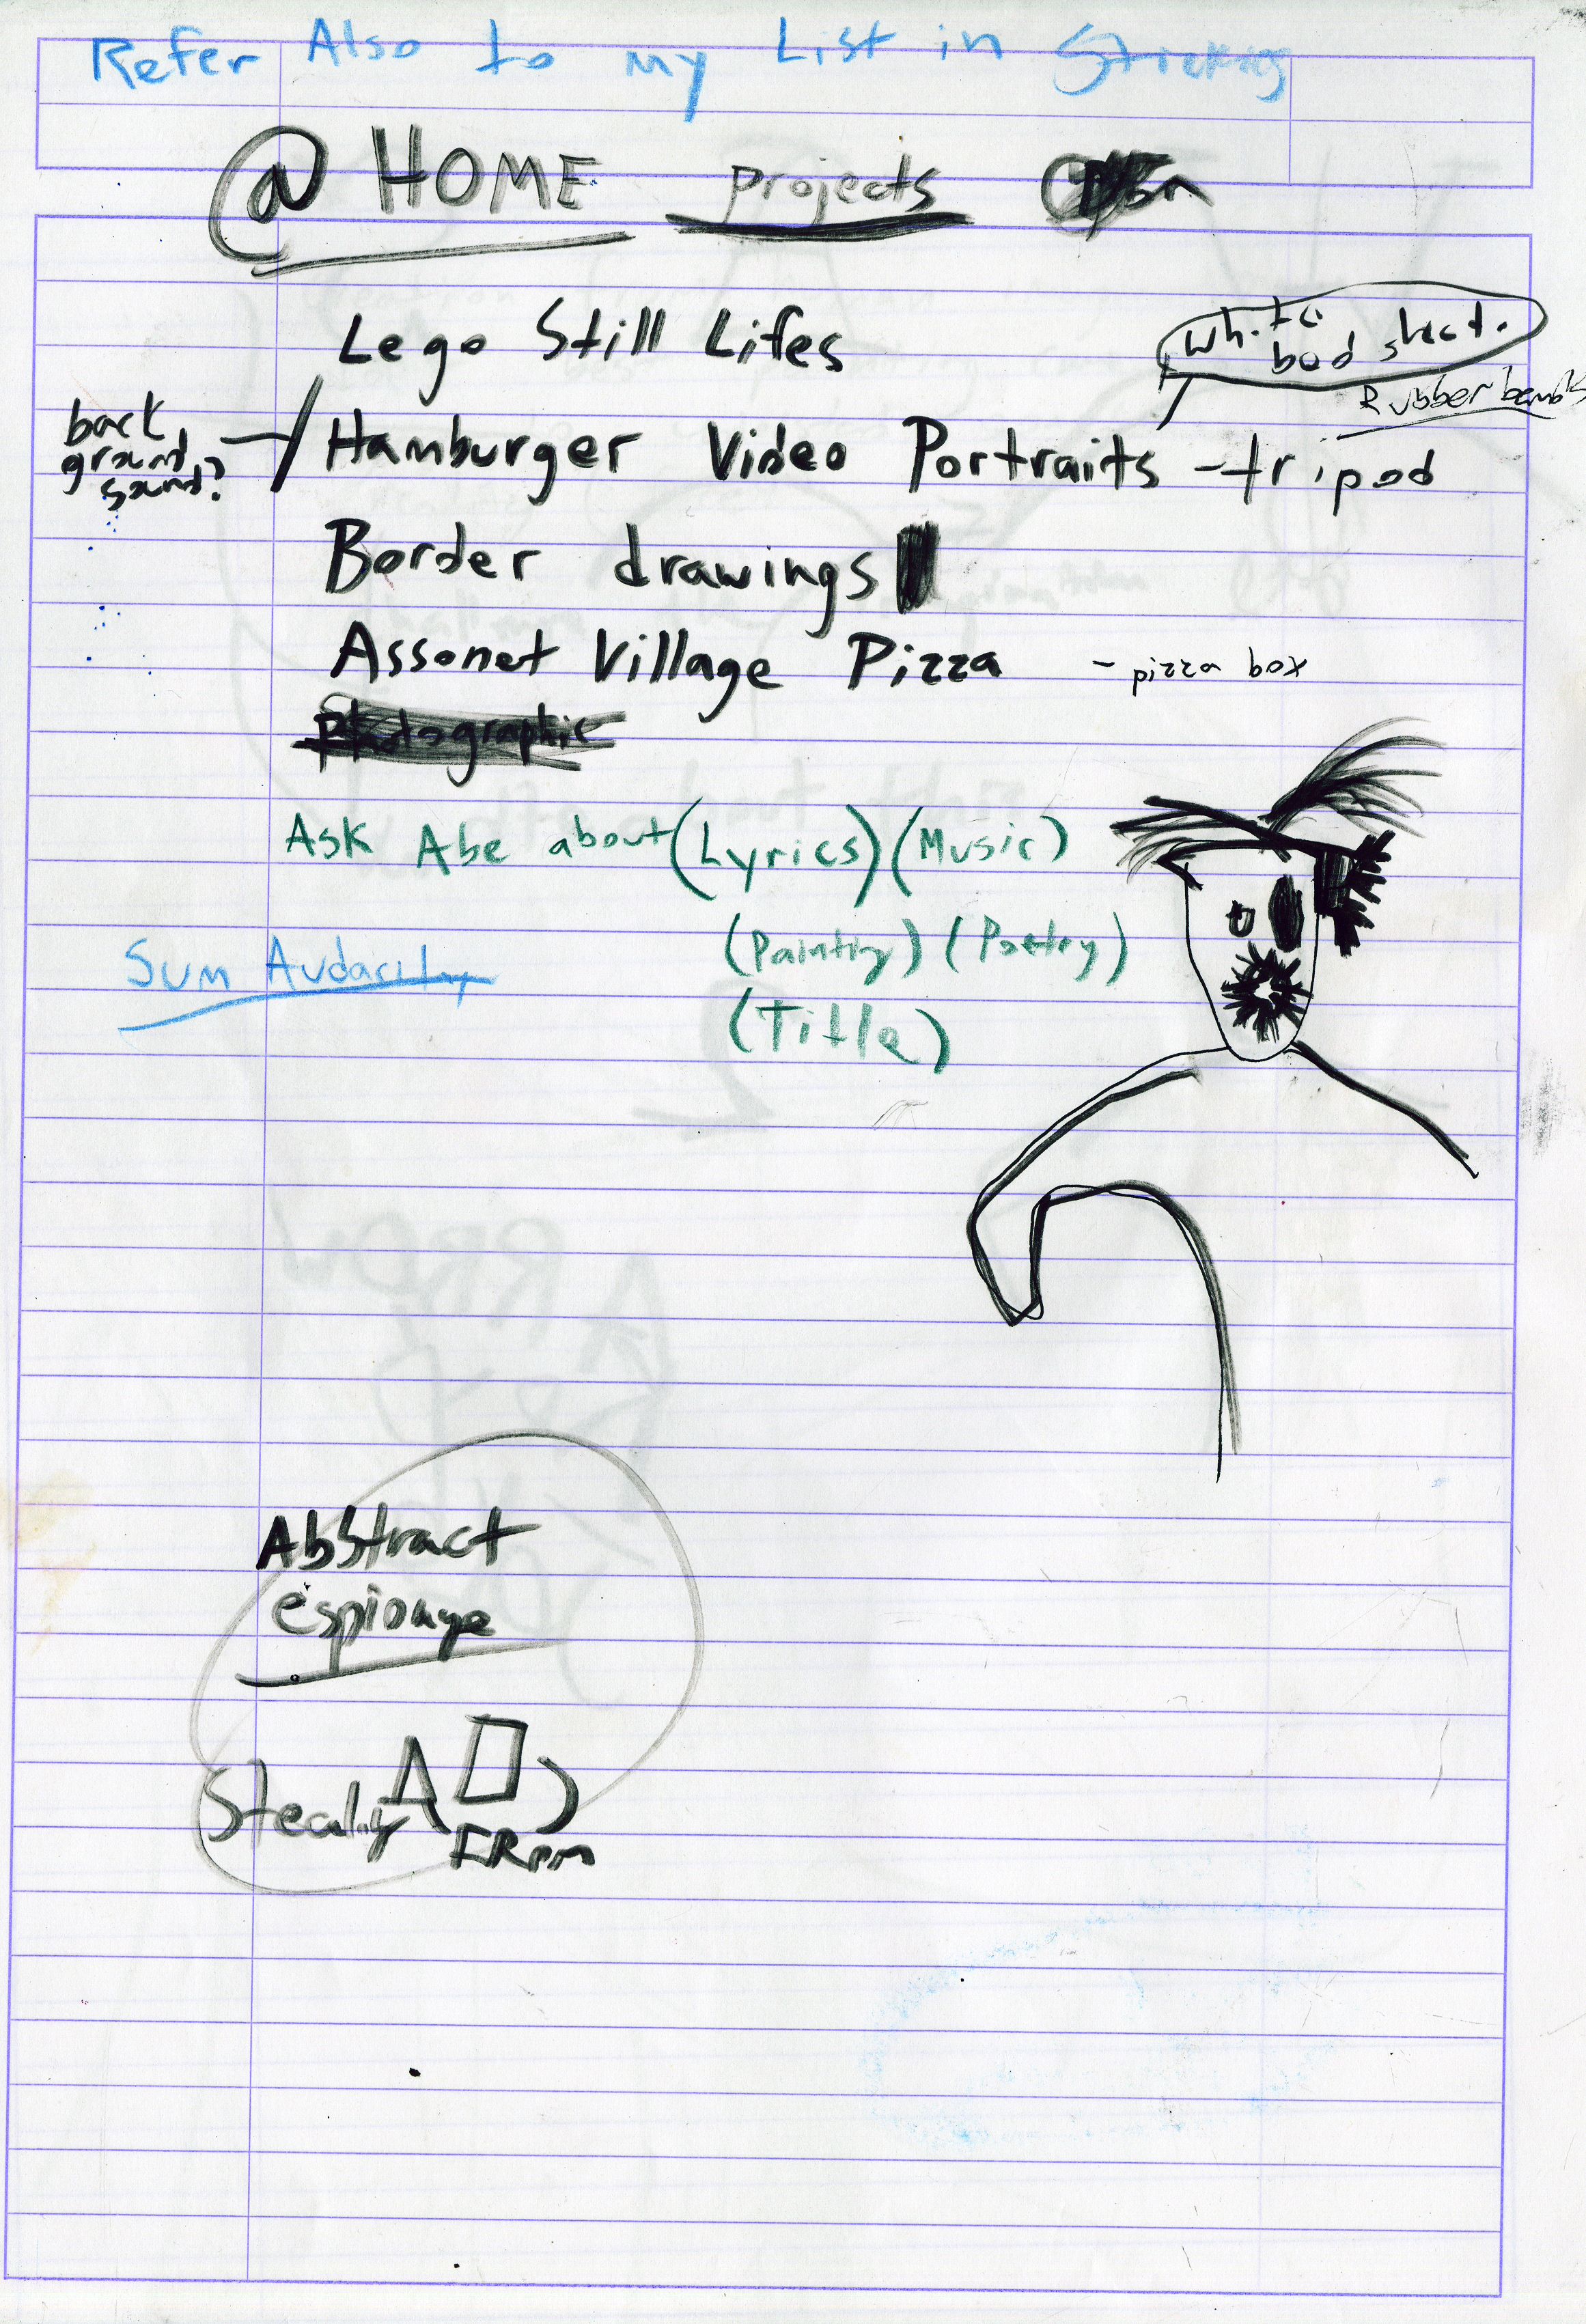 Refer Also to my List in Stickies
@ HOME projects
Lego Still Lifes
white
bed sheet.
Rubber bands
back
ground
sound?
Hamburger Video Portraits - tripod
Border drawings
Assonet Village Pizza - pizza box
Photographic
Ask Abe about (Lyrics) (Music)
(Painting) (Poetry)
(Title)
Sum Audacity
Abstract
espionage
Stealing A
FRom